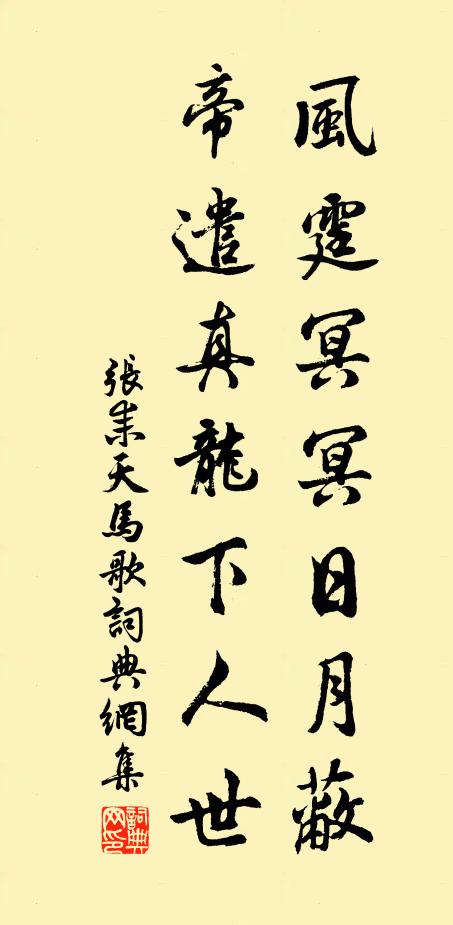 風霆冥冥日月蔽
帝遣真龍下人世
張耒天馬歌詞典網集
詞典網印